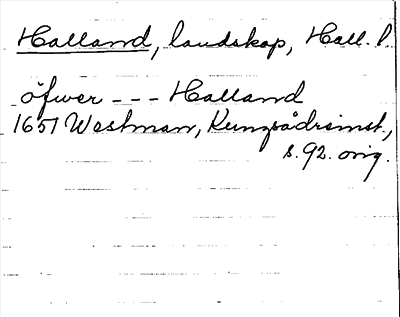 Halland, landskap, Hall. l.
öfwer --- Halland
1651 Westman, Kungsådreinst.,
s. 92. orig.